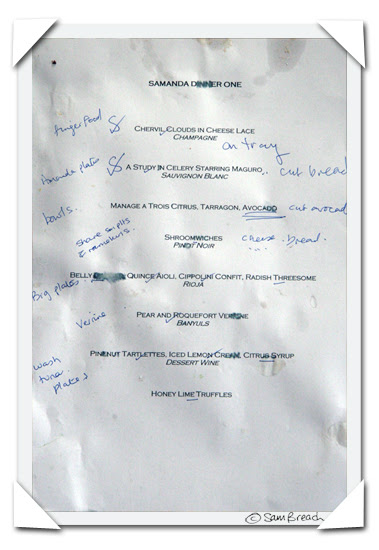 SAMANDA DINNER ONE
finger food
CHERVIL CLOUDS IN CHEESE LACE
CHAMPAGNE
on tray
Amanda plates
A STUDY IN CELERY STARRING MAGURO
cut bread
SAUVIGNON BLANC
bowls.
MANAGE A TROIS CITRUS, TARRAGON, AVOCADO
cut avocad
share
& ramekins
SHROOMWICHES
cheese. bread.
PINOT NOIR
Big plates
BELLY QUINCE AIOLI, CIPPOLINI CONFIT, RADISH THREESOME
RIOJA
Verrine
PEAR AND ROQUEFORT VERRINE
BANYULS
wash
tuna
plates
PINENUT TARTLETTES, ICED LEMON CREAM, CITRUS SYRUP
DESSERT WINE
HONEY LIME TRUFFLES
© Sam Breach